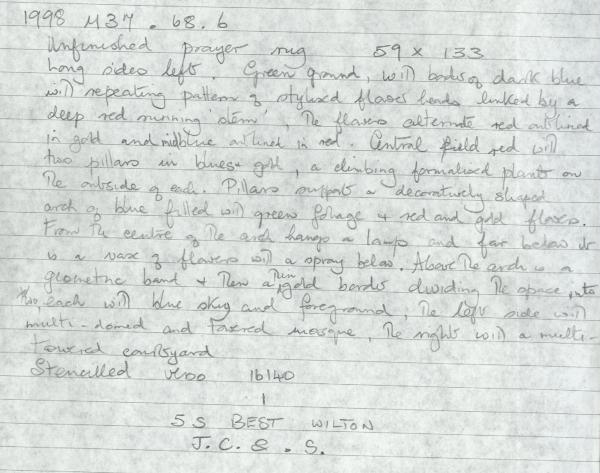 1998 M37 . 68. 6
Unfinished prayer rug 59 x 133
Long sides left. Green ground, with border of dark blue
with repeating pattern of stylised flower heads linked by a
deep red running stem. The flowers alternate red outlined
in gold and midblue outlined in red. Central field red with
two pillars in blues + gold, a climbing formalised plant on
the outside of each. Pillars support a decoratively shaped
arch of blue filled with green foliage + red and gold flowers.
From the centre of the arch hangs a lamp and far below it
is a vase of flowers with a spray below. Above the arch is a
geometric band + then a thin gold border dividing the space into
two, each with blue sky and foreground, the left side with
multi-domed and towered mosque, the right with a multi-
towered courtyard
Stencilled verso 16140
1
5 S BEST WILTON
J. C. & . S.